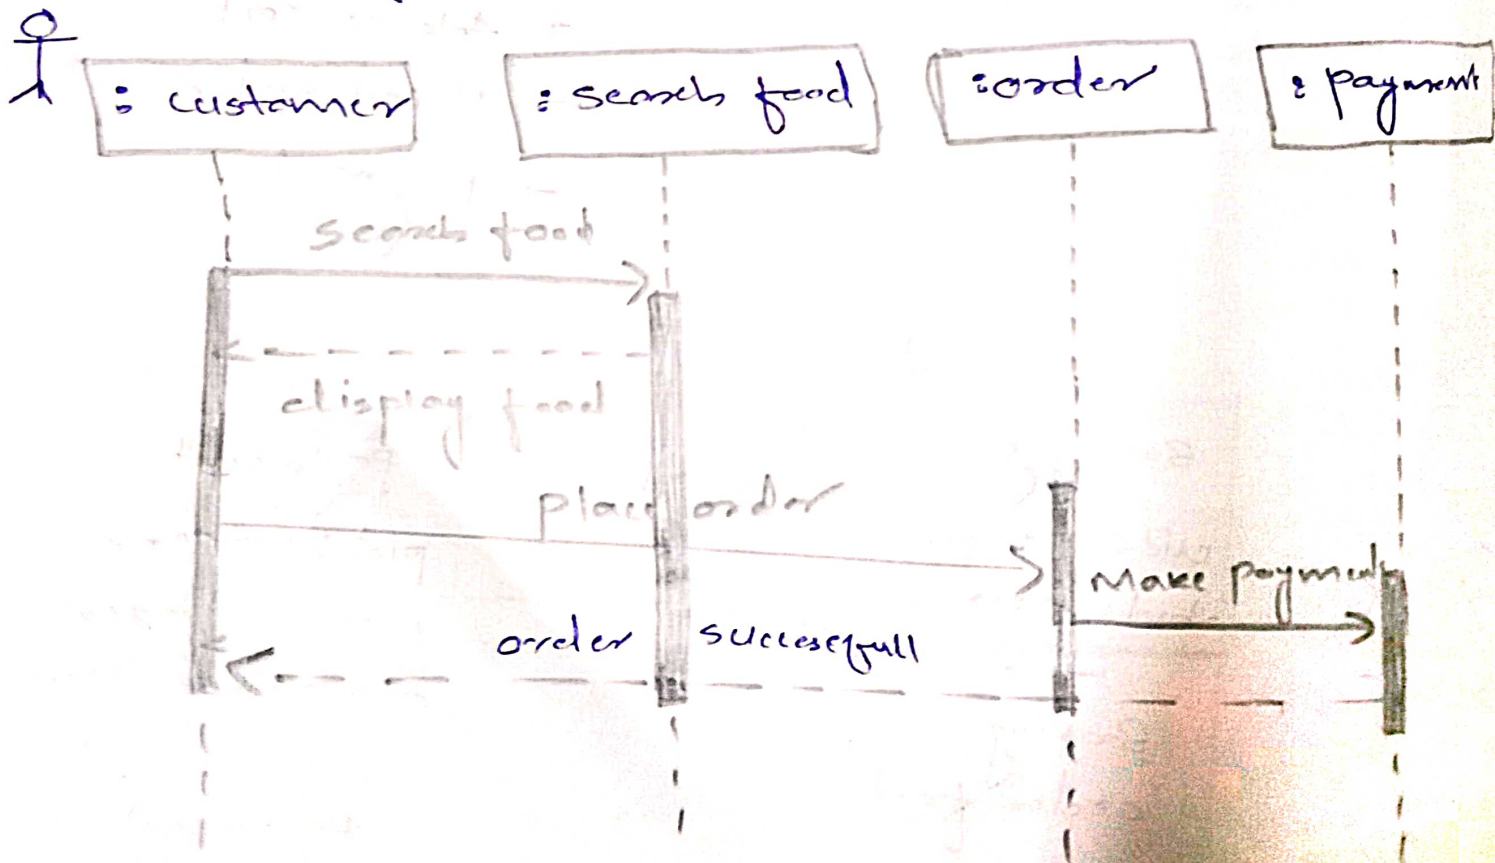 : customer
: search food
:order
: payment
search food
display food
place order
Make payment
order successfull